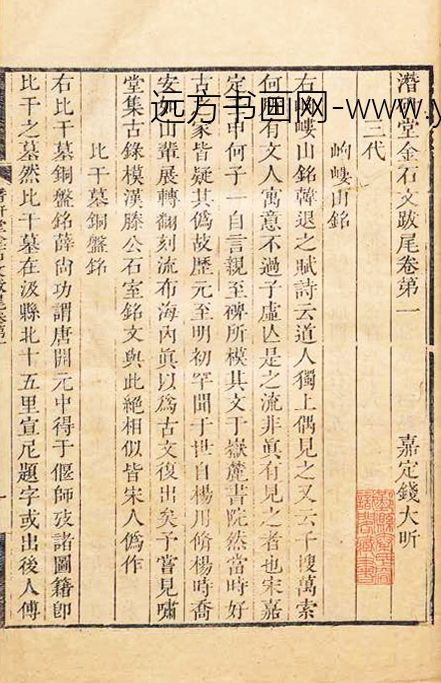 潛研堂金石文跋尾卷第一
嘉定錢大昕
三代
岣嶁山銘
右岣嶁山銘韓退之賦詩云道人獨上偶見之又云千搜萬索
何處有文人寓意不過子虛亾是之流非真有見之者也宋嘉
定中何子一自言親至碑所模其文于嶽麓書院然當時好
古之家皆疑其偽故歷元至明初罕聞于世自楊用脩楊時喬
安如山輩展轉翻刻流布海內真以為古文復出矣予嘗見嘯
堂集古錄模漢滕公石室銘文與此絕相似皆宋人偽作
比干墓銅盤銘
右比干墓銅盤銘薛尚功謂唐開元中得于偃師攷諸圖籍卽
比干之墓然比干墓在汲縣北十五里宣尼題字或出後人傅
远方书画网-www.y